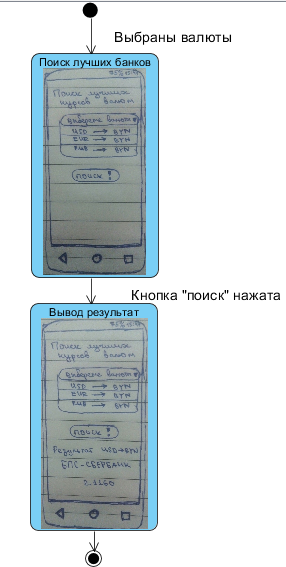 Выбраны валюты
Поиск лучших банков
Поиск лучших
курсов валют
Выберите валюты
USD → BYN
EUR → BYN
RUB → BYN
ПОИСК
Кнопка "поиск" нажата
Вывод результат
Поиск лучших
курсов валют
Выберите валюты
USD → BYN
EUR → BYN
RUB → BYN
ПОИСК
Результат USD→BYN
БПС-СБЕРБАНК